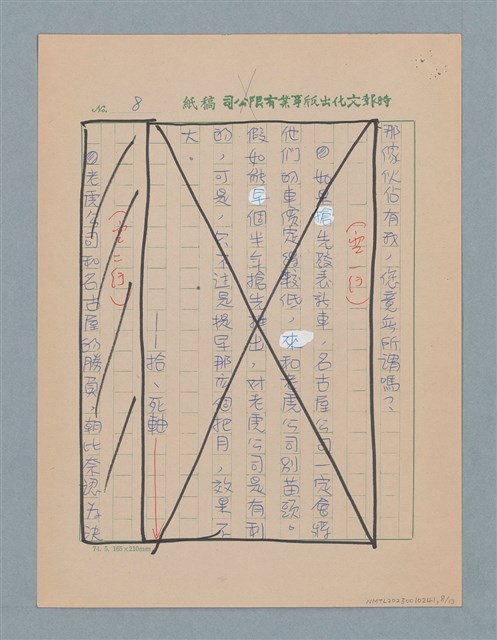 時報文化出版事業有限公司 稿紙
No. 8
那傢伙佔有我，您竟無所謂嗎？、
（空一行）
◎如果搶先發表新車，名古屋公司一定會將
他們的車價定得較低，來和老虎公司別苗頭。
假如能早個半年搶先推出，對老虎公司是有利
的，可是，只不過是提早那麼個把月，效果不
大。
——拾、死軸——
（空二行）
◎老虎公司和名古屋的勝負，朝比奈認為決
74. 5. 105×210mm